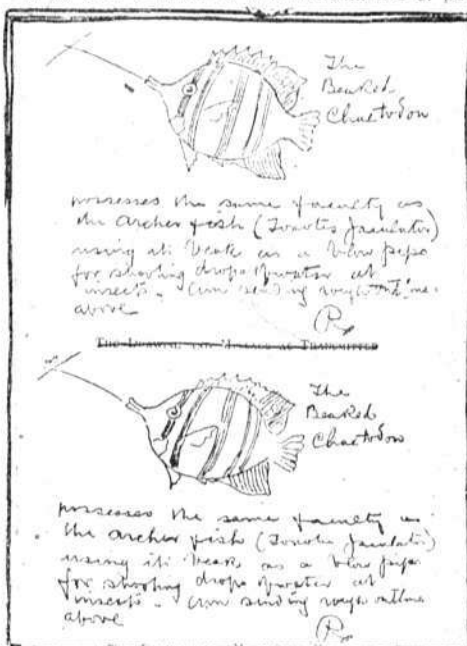 The
Beaked
Chaetodon
possesses the same faculty as
the archer fish (Toxotes Jaculator)
using its beak as a blow pipe
for shooting drops of water at
insects. Am sending rough outline
above
R
THE DRAWING AND MESSAGE AS TRANSMITTED
The
Beaked
Chaetodon
possesses the same faculty as
the archer fish (Toxotes Jaculator)
using its beak as a blow pipe
for shooting drops of water at
insects. Am sending rough outline
above
R